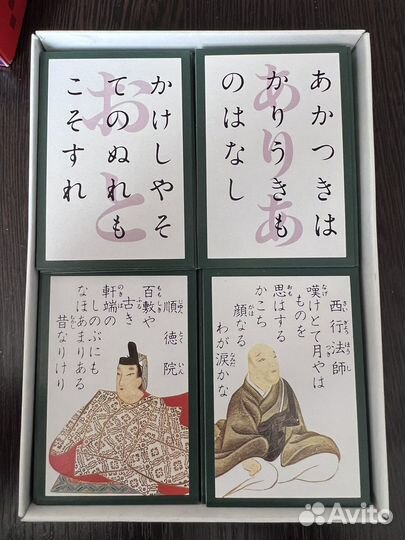 あかつきは
かりうきも
のはなし
ありあ
かけしやそ
てのぬれも
こそすれ
おと
西行法師
嘆けとて月やは
ものを
思はする
かこち
顔なる
わが涙かな
順徳院
百敷や
古き
軒端の
しのぶにも
なほあまりある
昔なりけり
Avito